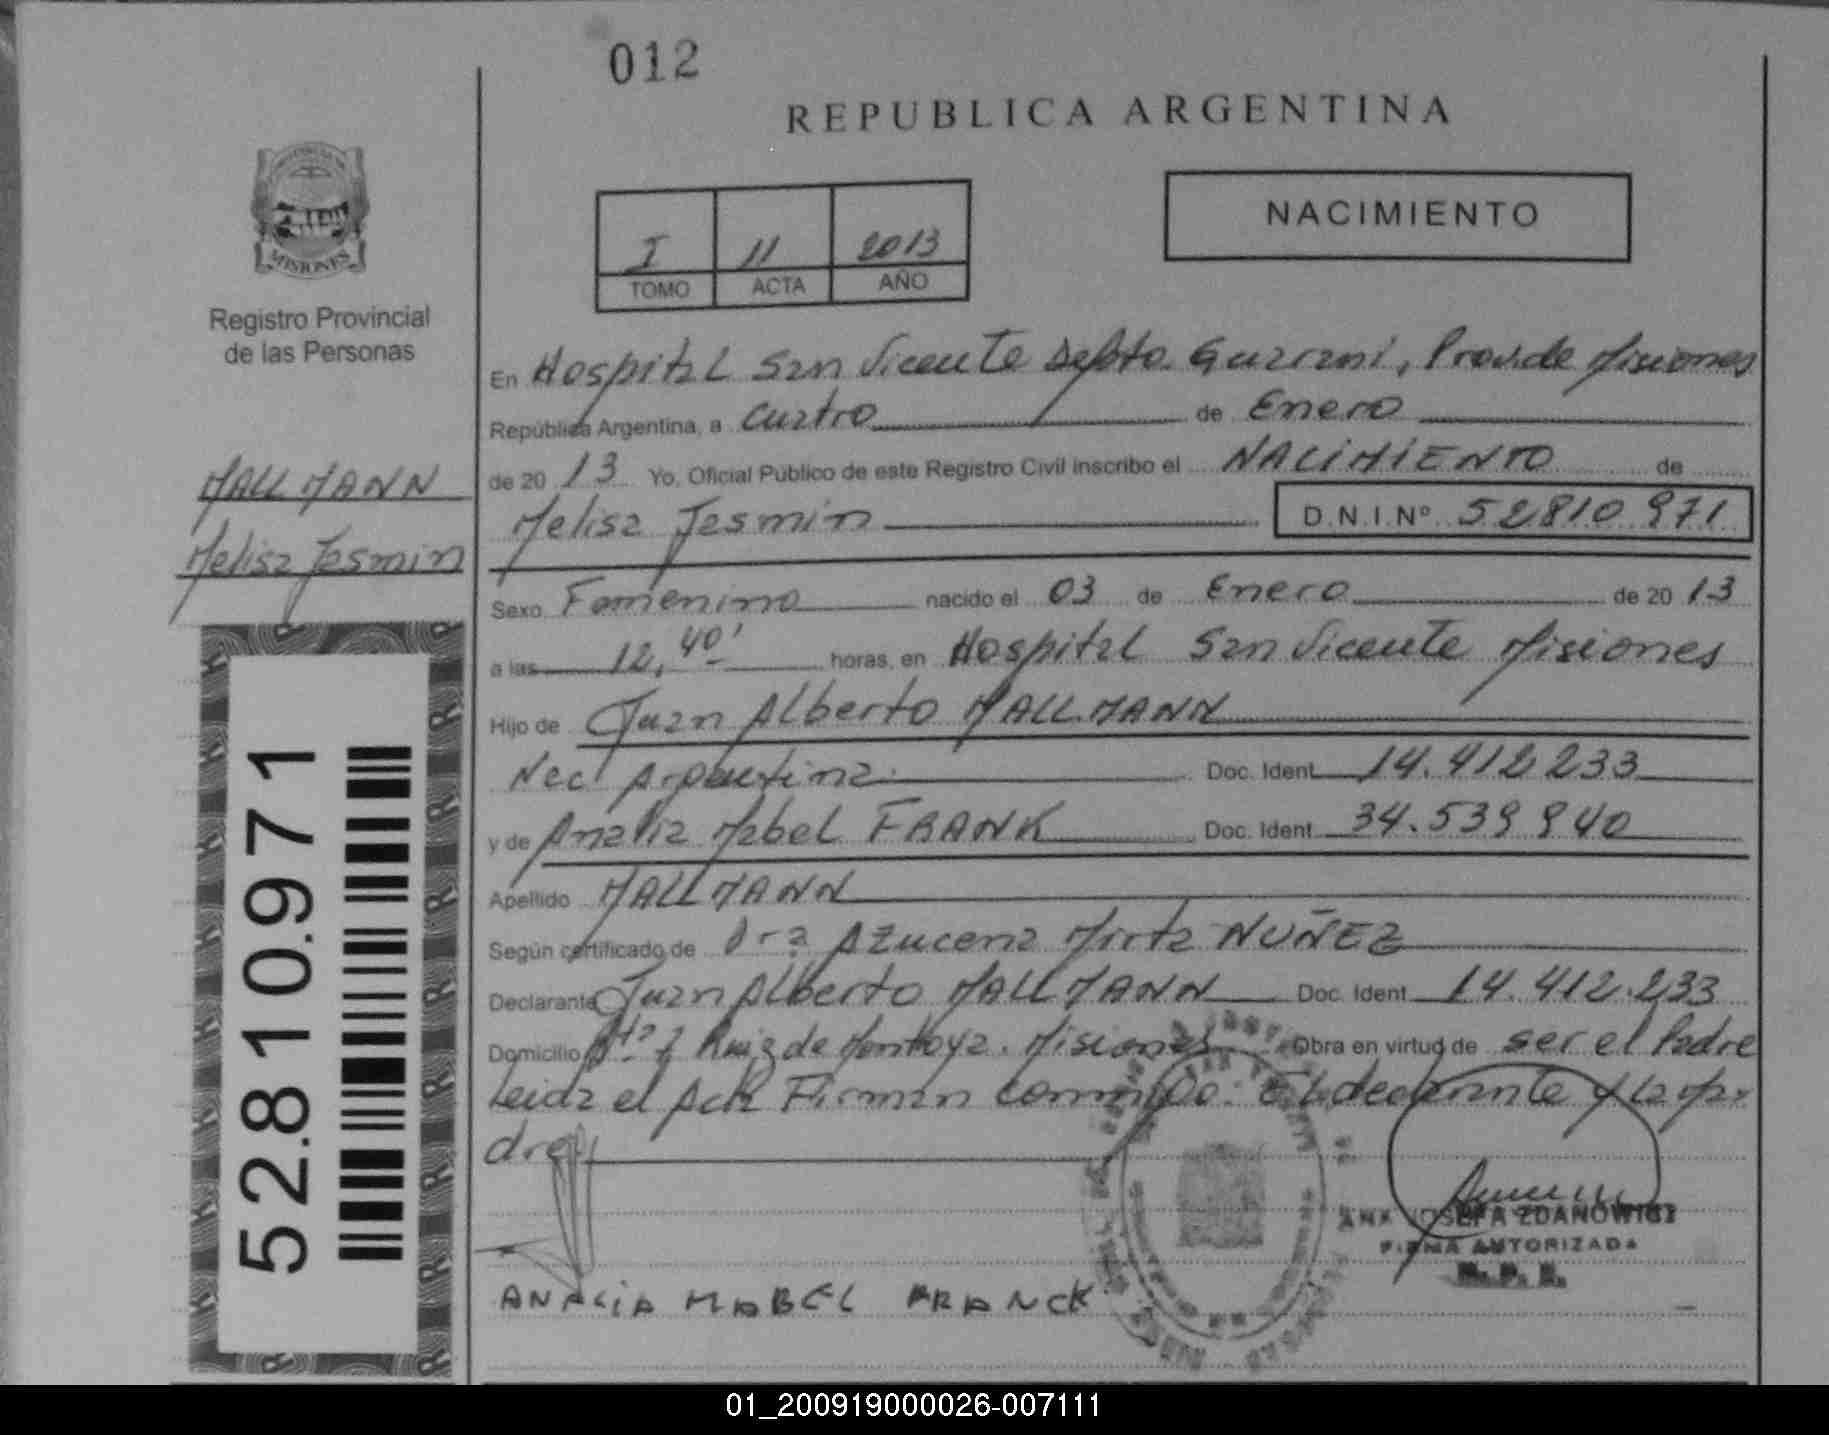 012
REPUBLICA ARGENTINA
MISIONES
Registro Provincial
de las Personas
I 11 2013
TOMO ACTA AÑO
NACIMIENTO
En Hospital San Vicente Depto. Guarani, Prov. de Misiones
República Argentina, a cuatro de Enero
de 20 13 Yo, Oficial Público de este Registro Civil inscribo el NACIMIENTO de
Melisa Jasmin D.N.I.Nº 52810971
MALLMANN
Melisa Jasmin
Sexo Femenino nacido el 03 de Enero de 20 13
a las 12,40' horas, en Hospital San Vicente Misiones
Hijo de Juan Alberto MALLMANN
Nac. Argentina Doc. Ident. 14.412.233
y de Analia Mabel FRANK Doc. Ident. 34.539.940
Apellido MALLMANN
Según certificado de Dra Azucena Mirta NUÑEZ
Declarante Juan Alberto MALLMANN Doc. Ident. 14.412.233
Domicilio Ruiz de Montoya. Misiones Obra en virtud de ser el Padre
Leida el Acta Firman conmigo: El declarante y la Ma-
dre
ANALIA MABEL FRANCK
ANA JOSEFA ZDANOWICZ
FIRMA AUTORIZADA
R. P. P.
52.810.971
01_200919000026-007111